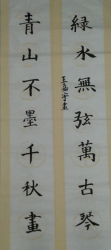 綠水無弦萬古琴
青山不墨千秋畫